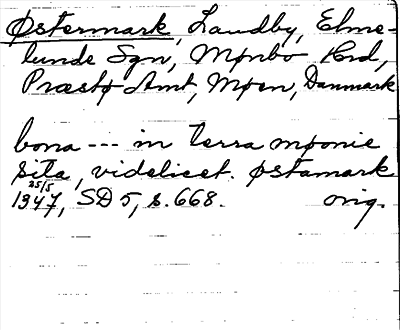 Østermark, Landby, Elme-
lunde Sgn, Mønbo Hrd,
Præstø Amt, Møen, Danmark
bona --- in terra møonie
sita, videlicet. østamark
25/5
1347, SD 5, s. 668. orig.